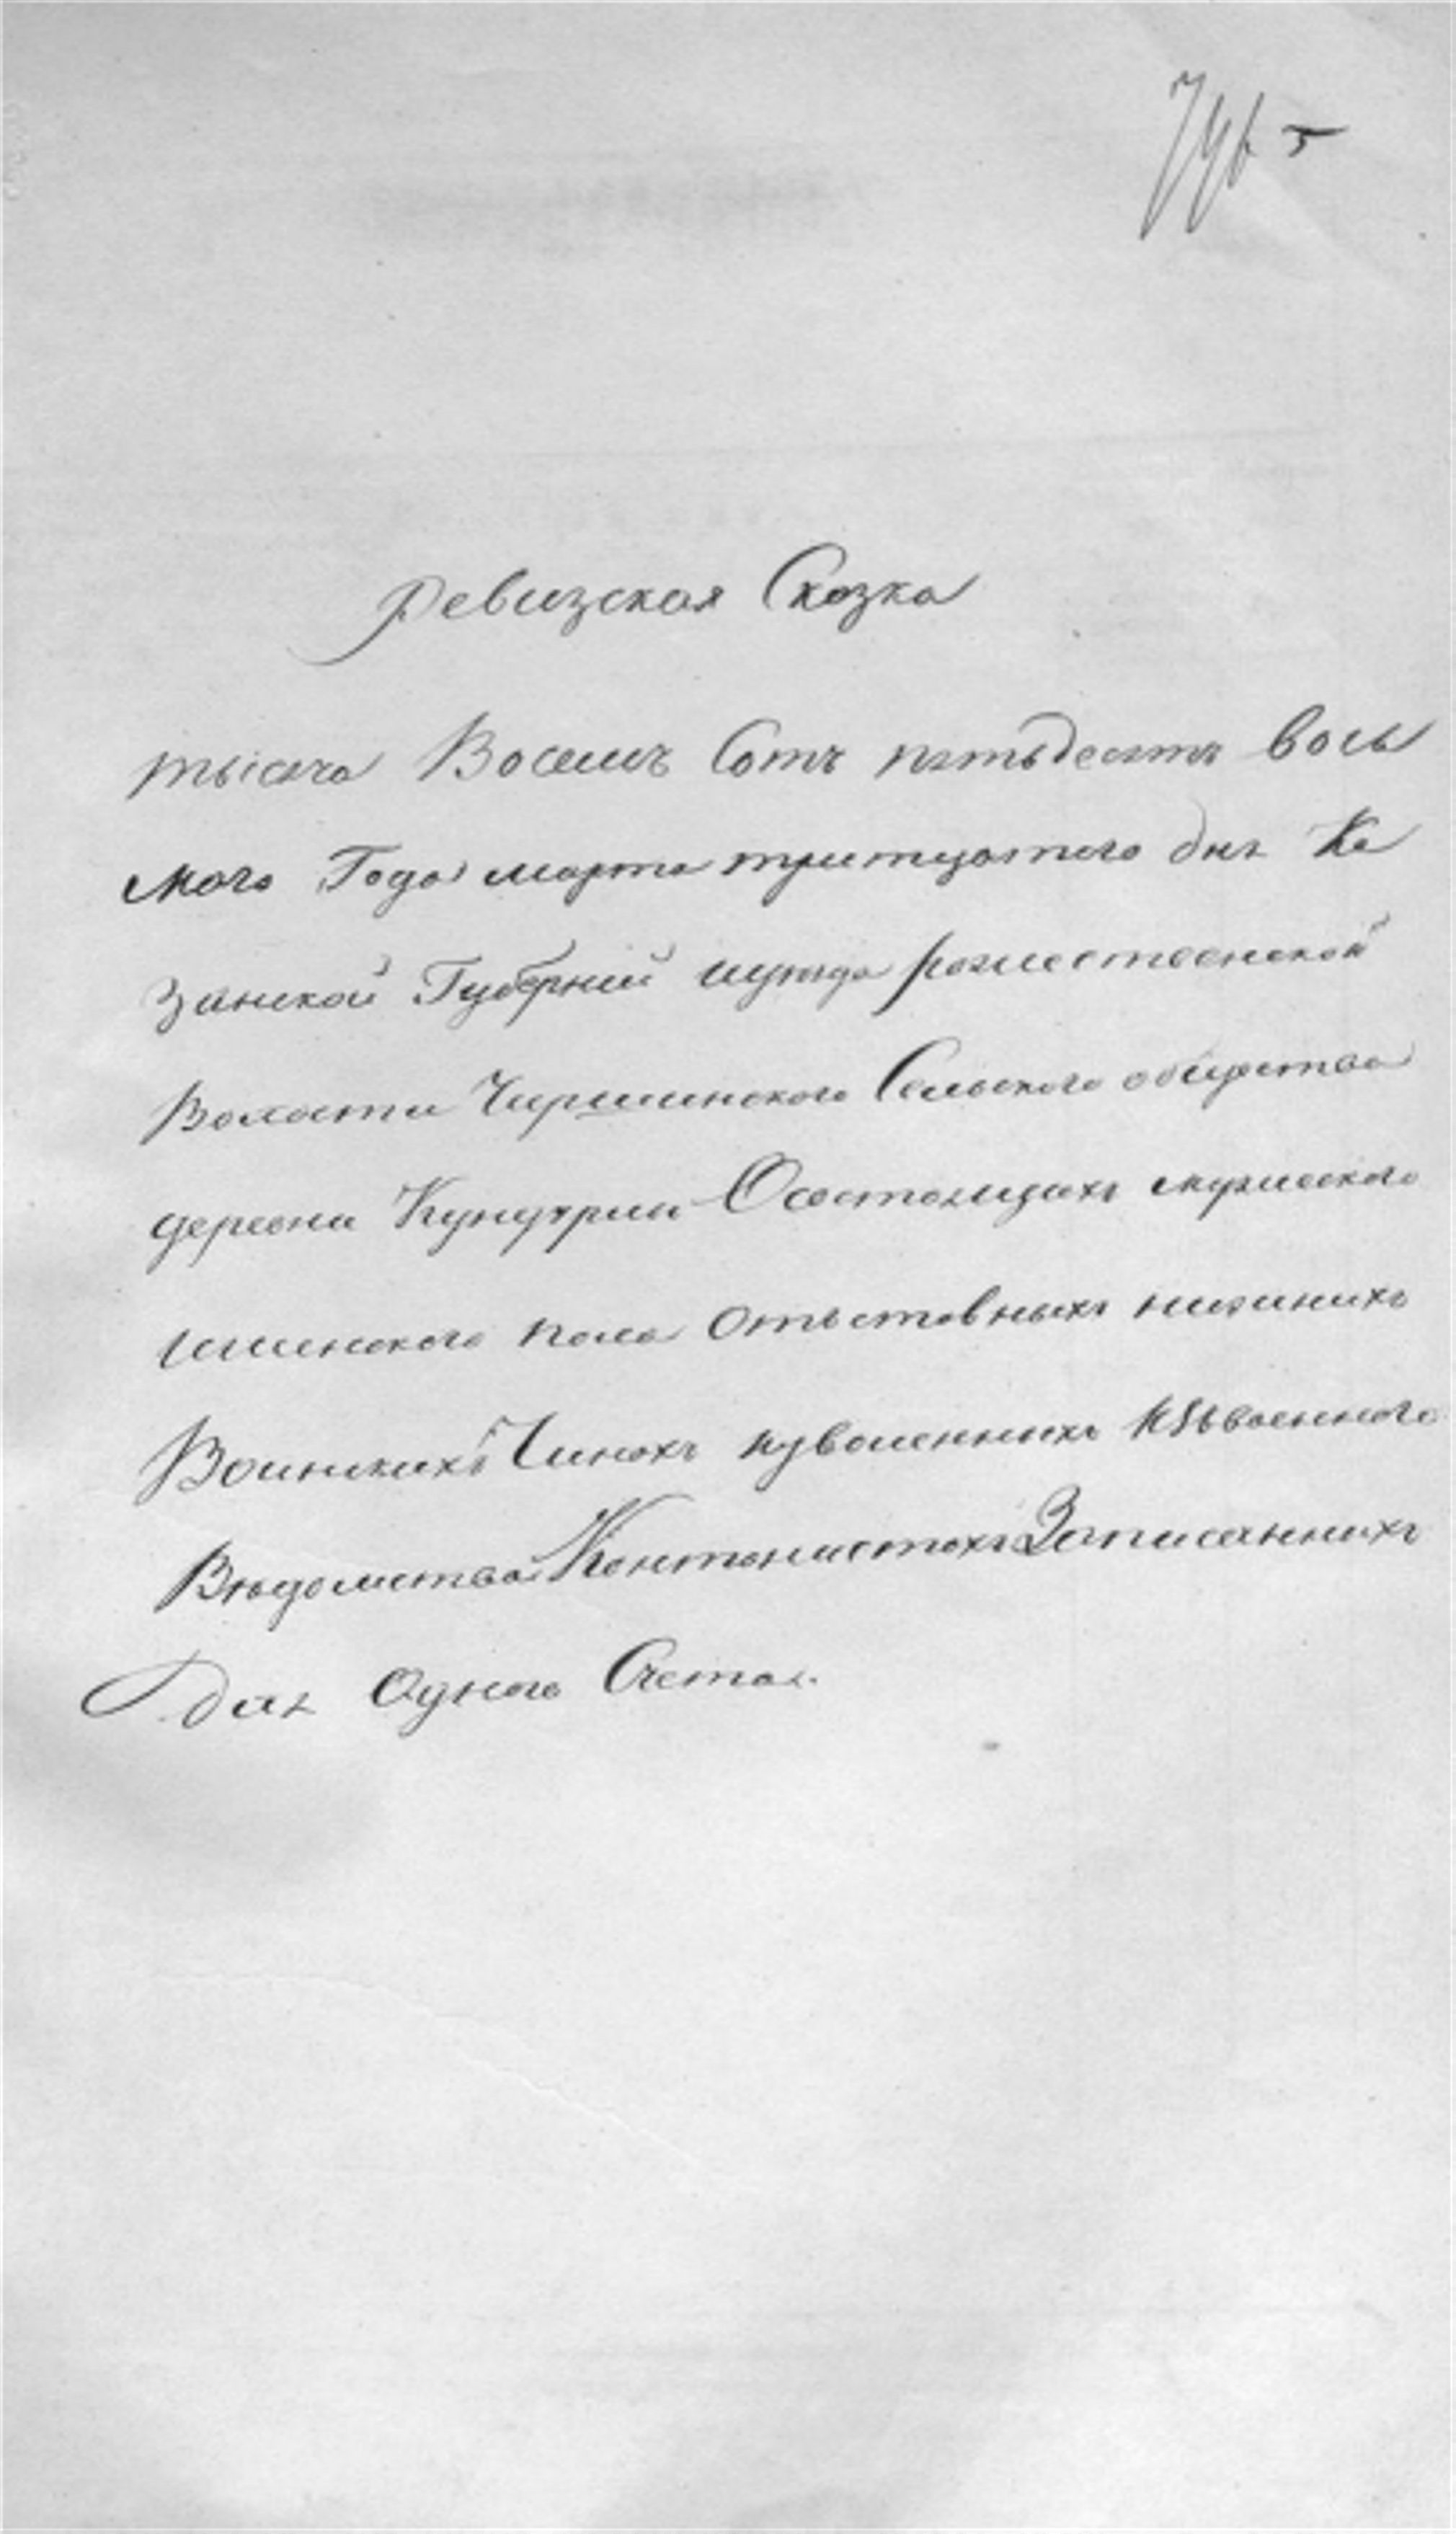 Ревизская Сказка
тысяча Восемъ Сотъ пятьдесятъ вось
мого Года марта тритцатого дня Ка
занской Губерний иуезда рожественской
Волости Чиршинского Сельского общества
деревни Кукугрли Осостоящихъ мужеского
иженского пола Отъставныхъ нижнихъ
Воинскихъ Чинахъ иуволенныхъ изъвоенного
Ведомства Кантонистахъ Записанныхъ
для Одного Счета.